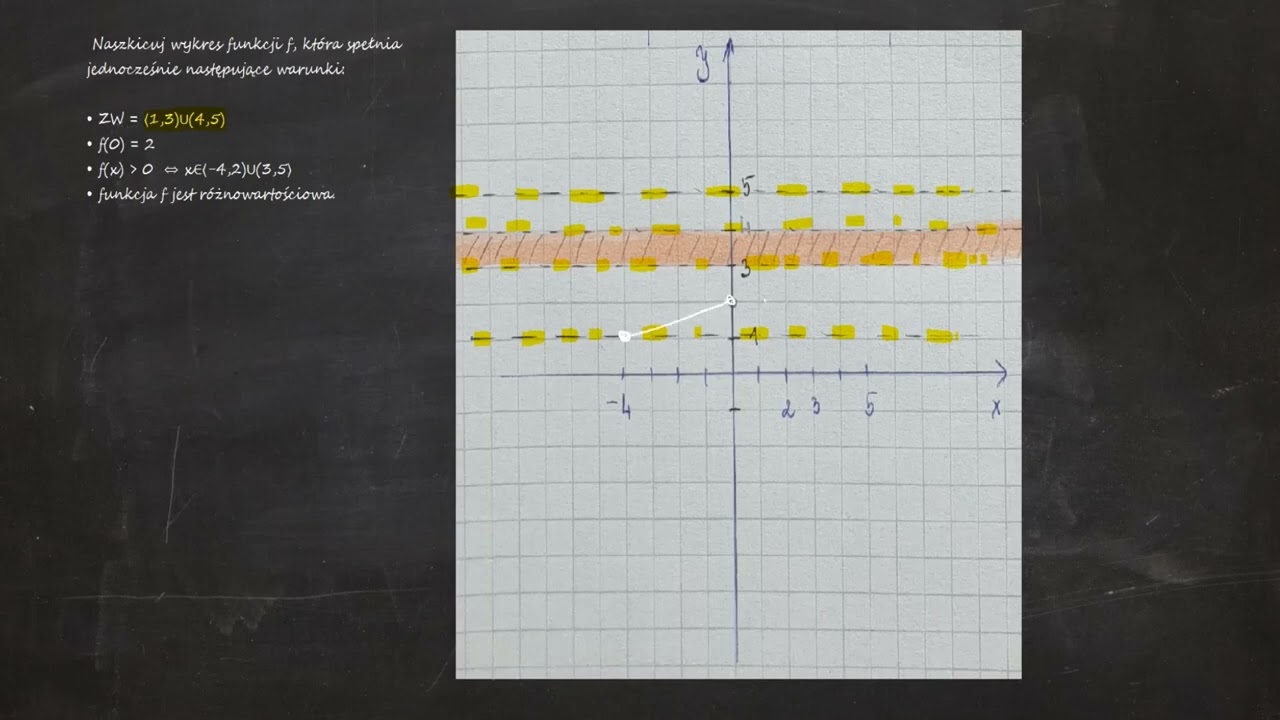 Naszkicuj wykres funkcji f, która spełnia
jednocześnie następujące warunki:
• ZW = ⟨1,3)∪(4,5)
• f(0) = 2
• f(x) > 0 ⇔ x∈⟨-4,2)∪(3,5⟩
• funkcja f jest różnowartościowa.
y
5
4
3
1
-4 2 3 5 x